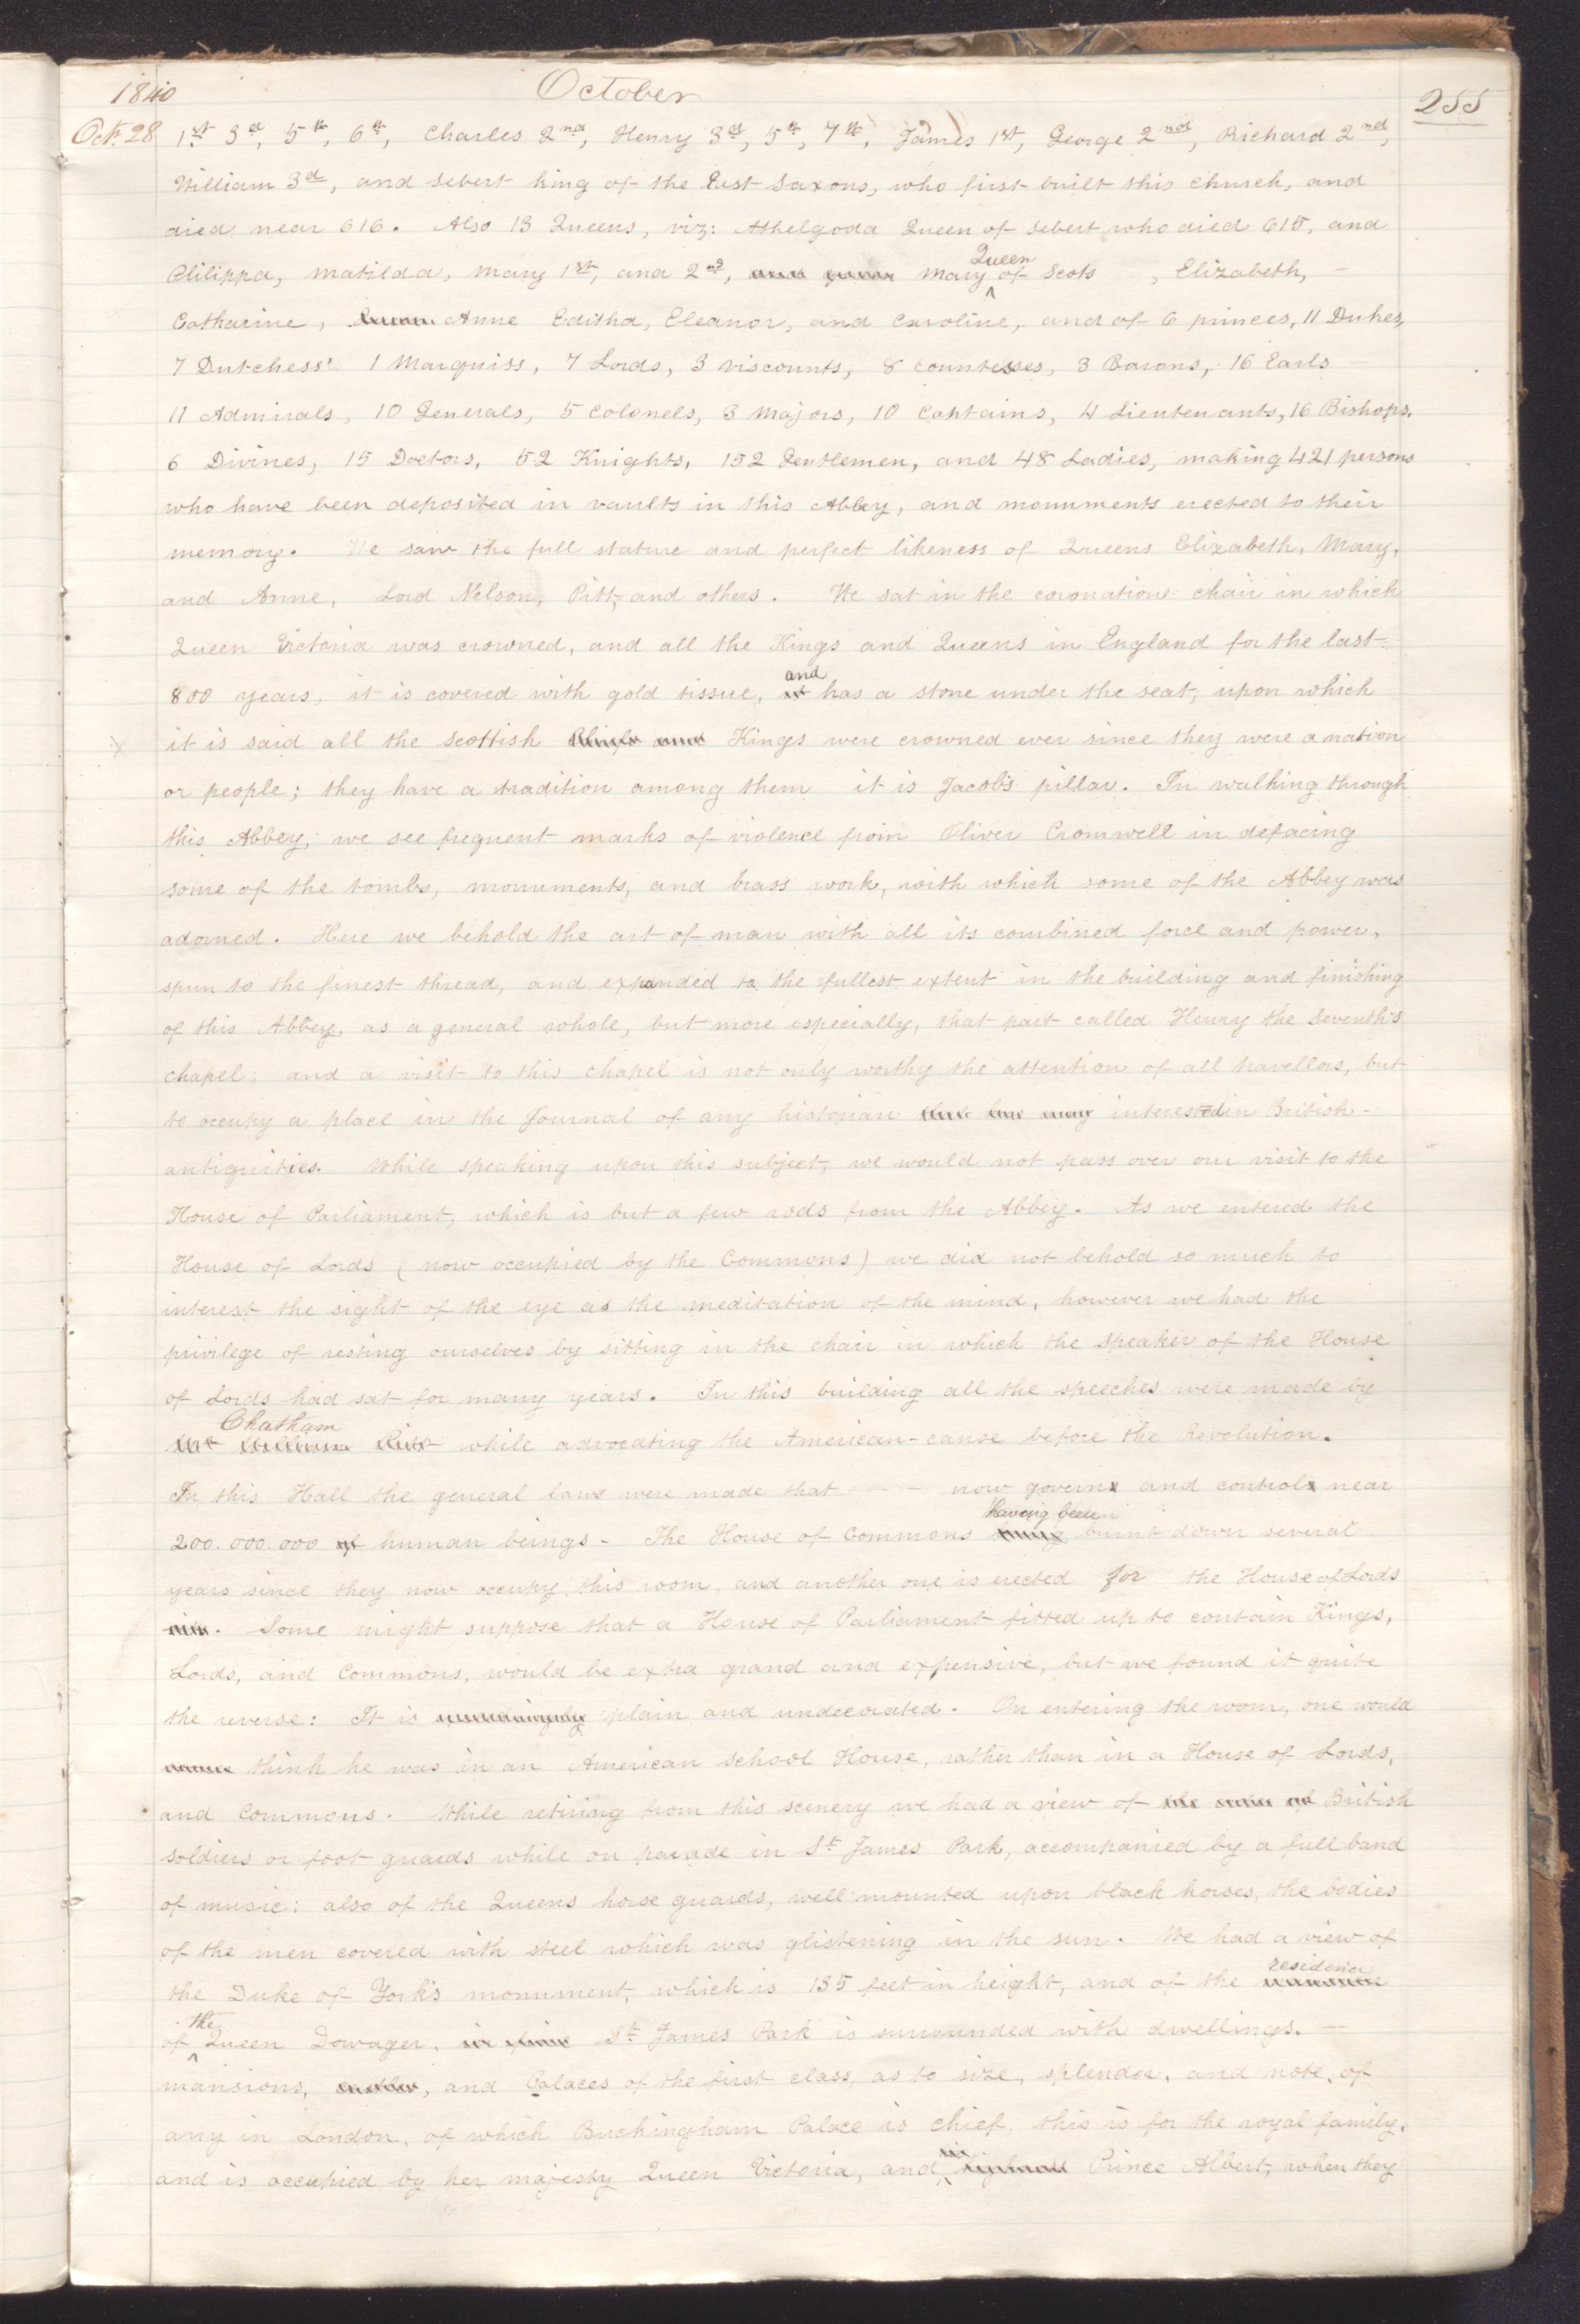 1840 October 255
Oct. 28 1st 3d, 5th, 6th, Charles 2nd, Henry 3d, 5th, 7th, James 1st, George 2nd, Richard 2nd,
William 3d, and Sebert king of the East Saxons, who first built this church, and
died near 616. Also 13 Queens, viz: Athelgoda Queen of Sebert who died 615, and
Philippa, Matilda, Mary 1st, and 2nd, Mary Queen of Scots , Elizabeth, —
Catharine, Anne Editha, Eleanor, and Caroline, and of 6 princes, 11 Dukes,
7 Dutchess' 1 Marquiss, 7 Lords, 3 Viscounts, 8 countesses, 3 Barons, 16 Earls
11 Admirals, 10 Generals, 5 Colonels, 3 Majors, 10 Captains, 4 Lieutenants, 16 Bishops.
6 Divines, 15 Doctors, 52 Knights, 152 Gentlemen, and 48 Ladies, making 421 persons
who have been deposited in vaults in this Abbey, and monuments erected to their
memory. We saw the full stature and perfect likeness of Queens Elizabeth, Mary,
and Anne, Lord Nelson, Pitt, and others. We sat in the coronation chair in which
Queen Victoria was crowned, and all the Kings and Queens in England for the last
800 years, it is covered with gold tissue, and it has a stone under the seat, upon which
it is said all the Scottish Kings were crowned ever since they were a nation
or people; they have a tradition among them it is Jacob's pillar. In walking through
this Abbey, we see frequent marks of violence from Oliver Cromwell in defacing
some of the tombs, monuments, and brass work, with which some of the Abbey was
adorned. Here we behold the art of man with all its combined force and power,
spun to the finest thread, and expanded to the fullest extent in the building and finishing
of this Abbey, as a general whole, but more especially, that part called Henry the Seventh's
chapel: and a visit to this chapel is not only worthy the attention of all travellors, but
to occupy a place in the Journal of any historian interested in British -
antiquities. While speaking upon this subject, we would not pass over our visit to the
House of Parliament, which is but a few rods from the Abbey. As we entered the
House of Lords (now occupied by the Commons) we did not behold so much to
interest the sight of the eye as the meditation of the mind, however we had the
privilege of resting ourselves by sitting in the chair in which the speaker of the House
of Lords had sat for many years. In this building all the speeches were made by
Chatham Mr William Pitt while advocating the American cause before the Revolution.
In this Hall the general laws were made that — — now govern and control near
200.000.000 of human beings - The House of Commons having been burnt down several
years since they now occupy this room, and another one is erected for the House of Lords
. Some might suppose that a House of Parliament fitted up to contain Kings,
Lords, and Commons, would be extra grand and expensive, but we found it quite
the reverse: It is plain and undecorated. On entering the room, one would
think he was in an American School House, rather than in a House of Lords,
and Commons. While retiring from this scenery we had a view of British
soldiers or foot guards while on parade in St. James Park, accompanied by a full band
of music: also of the Queens horse guards, well mounted upon black horses, the bodies
of the men covered with steel which was glistening in the sun. We had a view of
the Duke of York's monument, which is 135 feet in height, and of the residence
of the Queen Dowager. St. James Park is surrounded with dwellings. —
mansions, castles, and Palaces of the first class, as to size, splendor, and note, of
any in London, of which Buckingham Palace is chief, this is for the royal family,
and is occupied by her majesty Queen Victoria, and Prince Albert, when they